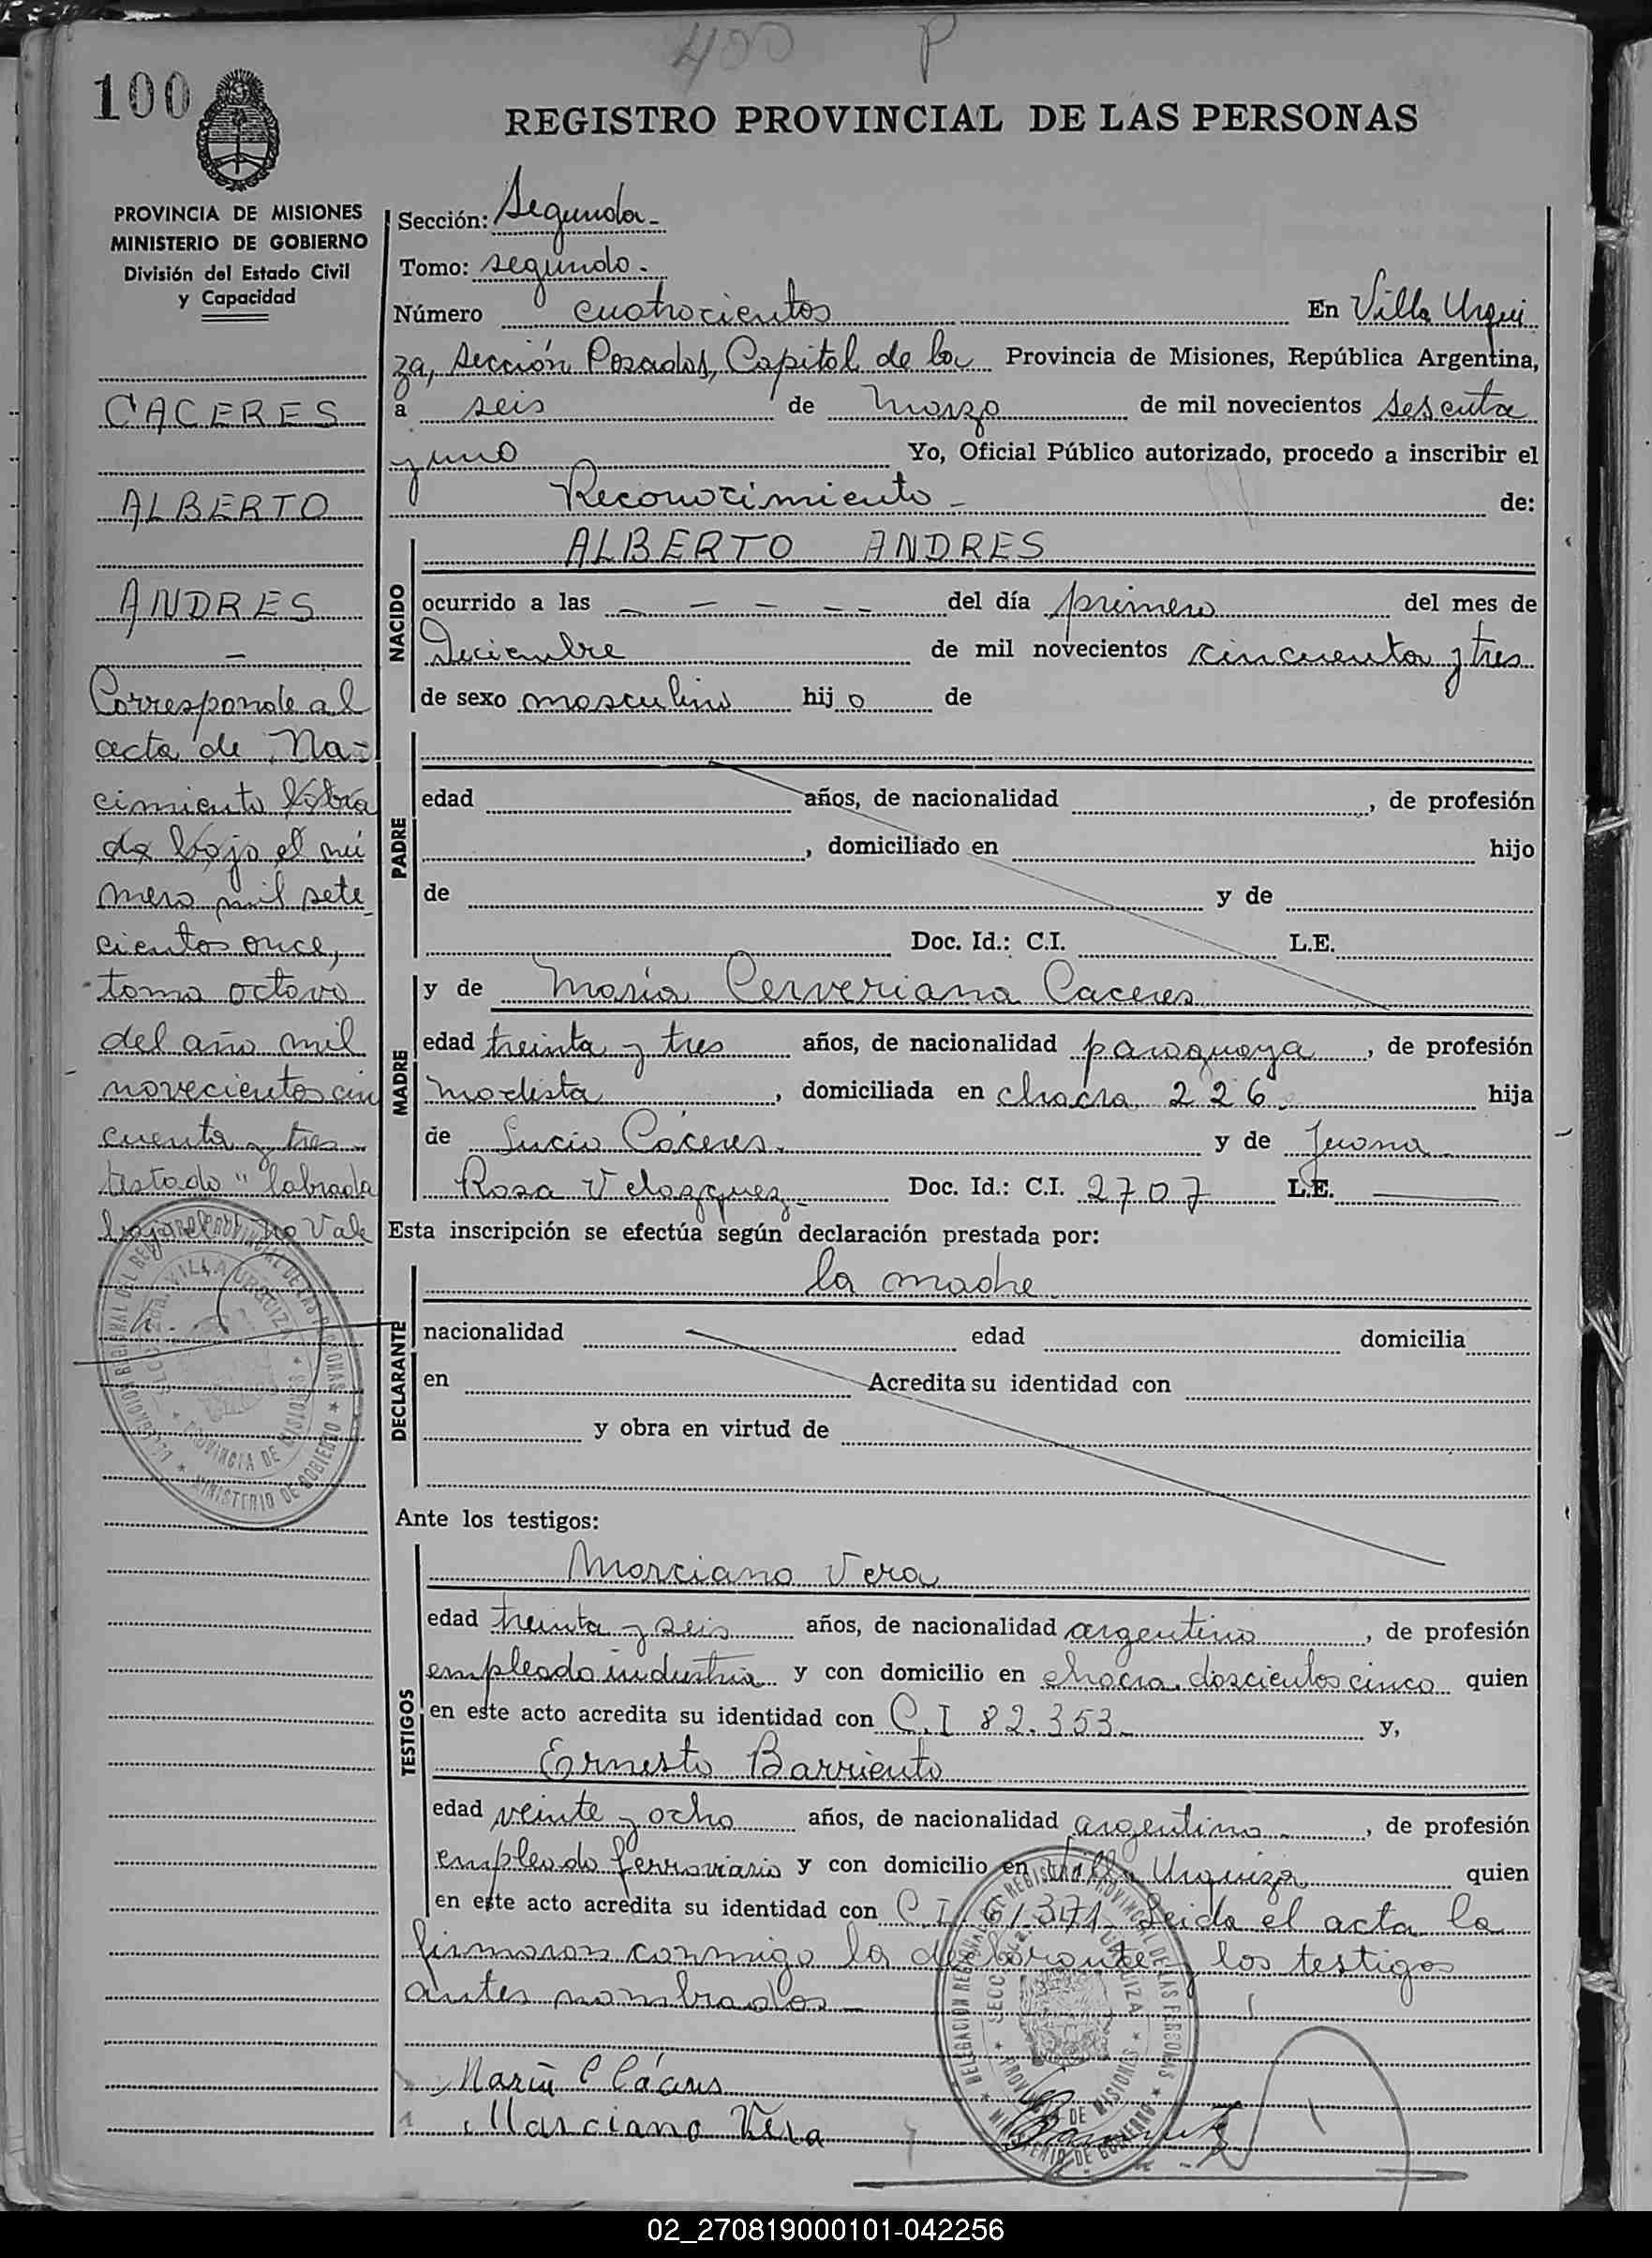 400 P
100
REGISTRO PROVINCIAL DE LAS PERSONAS
PROVINCIA DE MISIONES
MINISTERIO DE GOBIERNO
División del Estado Civil
y Capacidad
CACERES
ALBERTO
ANDRES
Corresponde al
acta de Na-
cimiento
bajo el nú
mero mil sete
cientos once,
tomo octavo
del año mil
novecientos cin
cuenta y tres
testado "labrada
bajo el" no Vale
Sección: Segunda-
Tomo: segundo-
Número cuatrocientos En Villa Urqui
za, sección Posadas, Capital de la Provincia de Misiones, República Argentina,
a seis de Marzo de mil novecientos sesenta
y uno Yo, Oficial Público autorizado, procedo a inscribir el
Reconocimiento - de:
NACIDO
ALBERTO ANDRES
ocurrido a las - - - - - del día primero del mes de
Diciembre de mil novecientos cincuenta y tres
de sexo masculino hijo de
PADRE
edad años, de nacionalidad , de profesión
, domiciliado en hijo
de y de
Doc. Id.: C.I. L.E.
MADRE
y de María Cerveriana Caceres
edad treinta y tres años, de nacionalidad paraguaya , de profesión
modista , domiciliada en chacra 226 hija
de Lucio Cáceres y de Juana
Rosa Velazquez Doc. Id.: C.I. 2707 L.E.
Esta inscripción se efectúa según declaración prestada por:
DECLARANTE
la madre
nacionalidad edad domicilia
en Acredita su identidad con
y obra en virtud de
Ante los testigos:
TESTIGOS
Marciano Vera
edad treinta y seis años, de nacionalidad argentino , de profesión
empleado industria y con domicilio en chacra doscientos cinco quien
en este acto acredita su identidad con C.I 82.353 y,
Ernesto Barriento
edad veinte y ocho años, de nacionalidad argentino , de profesión
empleado ferroviario y con domicilio en Villa Urquiza quien
en este acto acredita su identidad con C.I. Leida el acta la
firmaron conmigo la declarante y los testigos
antes nombrados
Maria C Cáceres
Marciano Vera
DELEGACION REGIONAL DEL REGISTRO PROVINCIAL DE LAS PERSONAS * MINISTERIO DE GOBIERNO *
VILLA URQUIZA * PROVINCIA DE MISIONES *
02_270819000101-042256